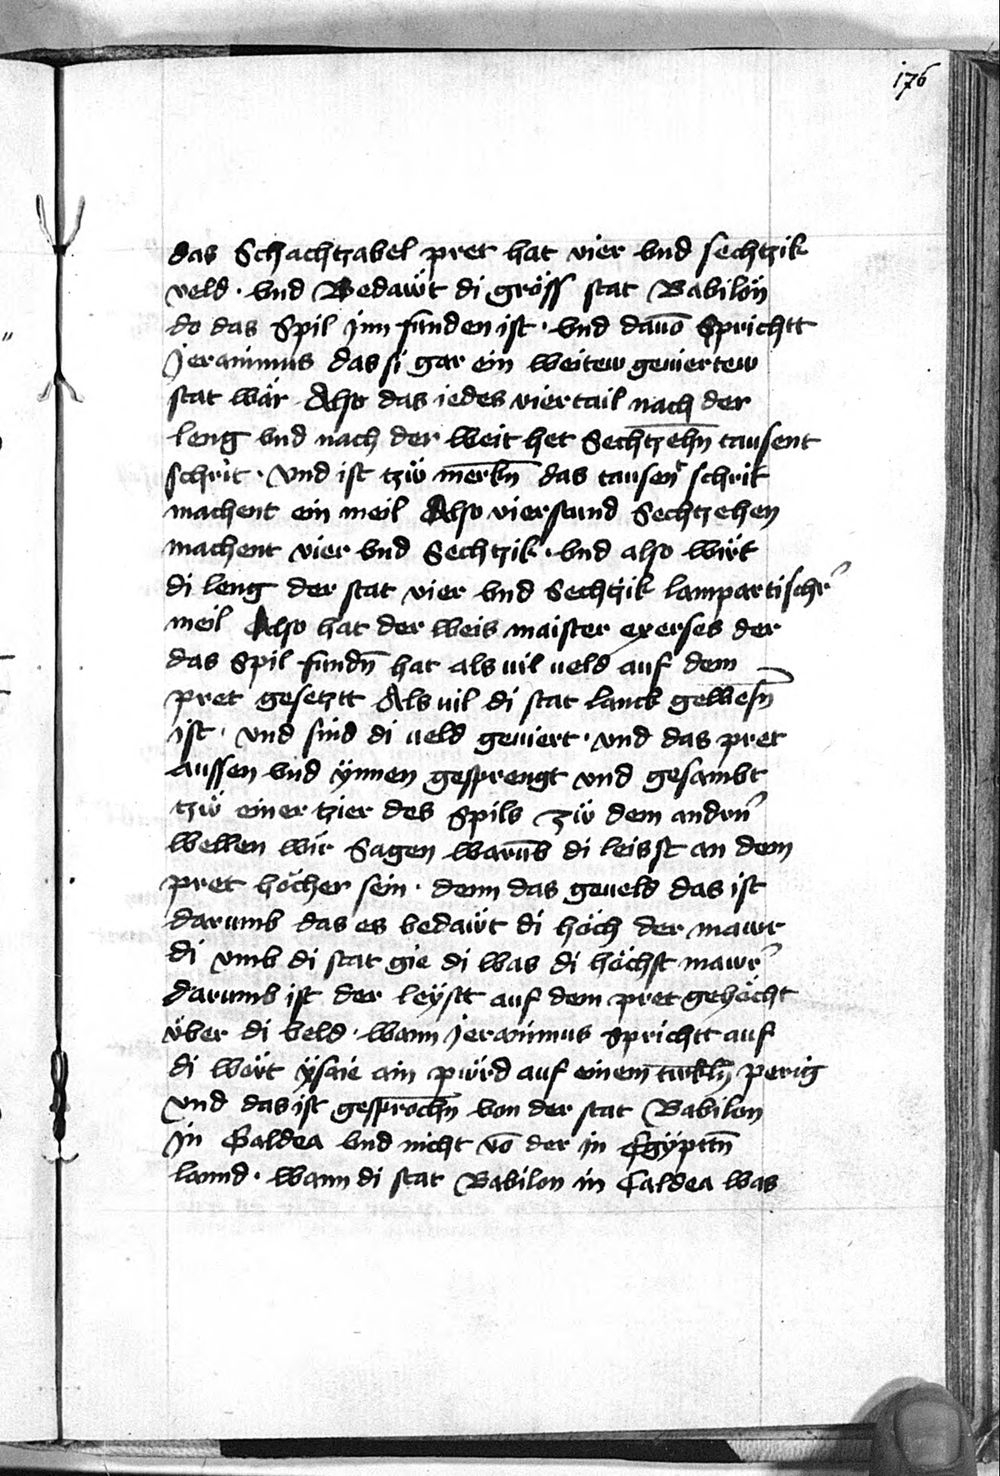 176
das Schachtzabel pret hat vier vnd sechtzik
veld · vnd Bedawẗ di gröss stat Babilon
do das Spil Jnn funden ist · vnd dauō Sprichtt
Jeranimus das si gar ein weitew geuiertew
stat wär Also das iedes viertail nach der
leng vnd nach der weit het Sechtzehn̄ tausent
schrit · vnd ist tzw̎ merkn̄ das tausent schrit
machent ein meil Also vierstund Sechtzehen
machent vier vnd Sechtzik · vnd also wirt
di leng der stat vier vnd Sechtzik lampartischr̓
meil Also hat der weis maister exerses der
das Spil fundn̄ hat als uil ueld auf dem
pret gesetztt Als uil di stat lanck gewesn̄
ist · vnd sind di ueld geuiert · vnd das pret
aussen vnd ÿnnen gesprengt vnd gesambt
tzw̎ einer tzier des Spils zw̎ dem andrn̓
wellen wir Sagen warūb di leisst an dem
pret höcher sein · denn das geueld das ist
darumb das es bedawẗ di höch der mawr
di vmb di stat gie di was di höchst mawr̓
darumb ist der leÿstt auf dem pret gehöcht
über di veld · wann Jeranimus sprichtt auf
di wört ÿsaie ain pürd auf einem tunkln̄ perig
vnd das ist gesprochn̄ von der stat Babilon
Jn Caldea vnd nicht vō der in Egÿpttn̄
lannd · wann di stat Babilon in Caldea was